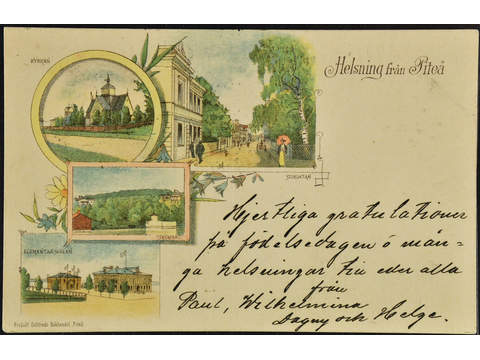 Helsning från Piteå
KYRKAN
STORGATAN
ELEMENTARSKOLAN
Hjertliga gratulationer
på födelsedagen o mån-
ga helsningar till eder alla
från
Paul, Wilhelmina
Dagny och Helge.